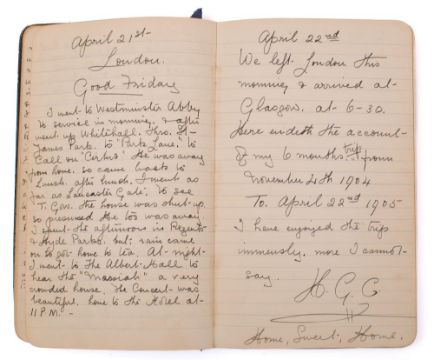 April 21st
London.
Good Friday
I went to Westminster Abbey
to service in morning, & after
went up Whitehall. Thro. St-
James Park. to Park Lane, to
call on "Curtis" He was away
from home. so came back to
Lunch. after lunch, I went as
far as Lancaster Gate, to see
T. Gow. the house was shut up.
so presumed he too was away
I spent the afternoon in Regents
& Hyde Parks. but, rain came
on so got home to tea. At-night-
I went to the Albert-Hall to
hear the "Messiah" a very
crowded house. The Concert-was
beautiful. home to the Hotel at-
11 P.M. -
April 22nd
We left London this
morning & arrived at-
Glasgow. at- 6-30.
Here endeth the account-
of my 6 months trip from
November 4th 1904
To. April 22nd 1905
I have enjoyed the trip
immensely, more I cannot-
say.
H. G. C
Home, Sweet, Home.